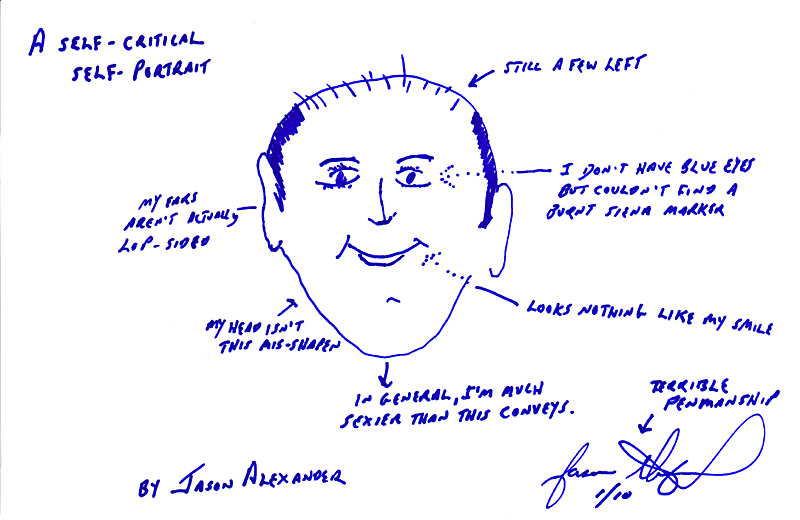 A SELF-CRITICAL
SELF-PORTRAIT
STILL A FEW LEFT
I DON'T HAVE BLUE EYES
BUT COULDN'T FIND A
BURNT SIENA MARKER
MY EARS
AREN'T ACTUALLY
LOP-SIDED
LOOKS NOTHING LIKE MY SMILE
MY HEAD ISN'T
THIS MIS-SHAPEN
IN GENERAL, I'M MUCH
SEXIER THAN THIS CONVEYS.
TERRIBLE
PENMANSHIP
BY JASON ALEXANDER
Jason Alexander
1/10